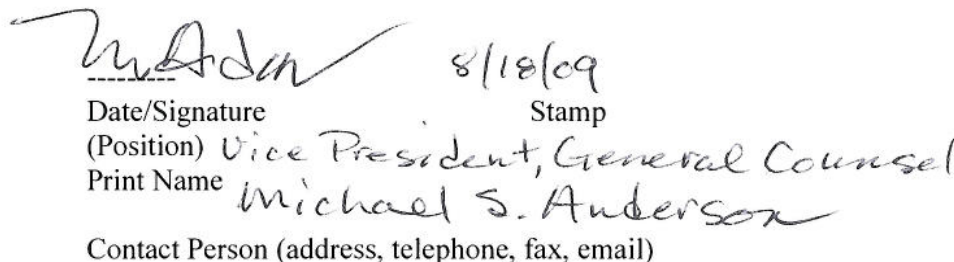 8/18/09
Date/Signature Stamp
(Position) Vice President, General Counsel
Print Name Michael S. Anderson
Contact Person (address, telephone, fax, email)